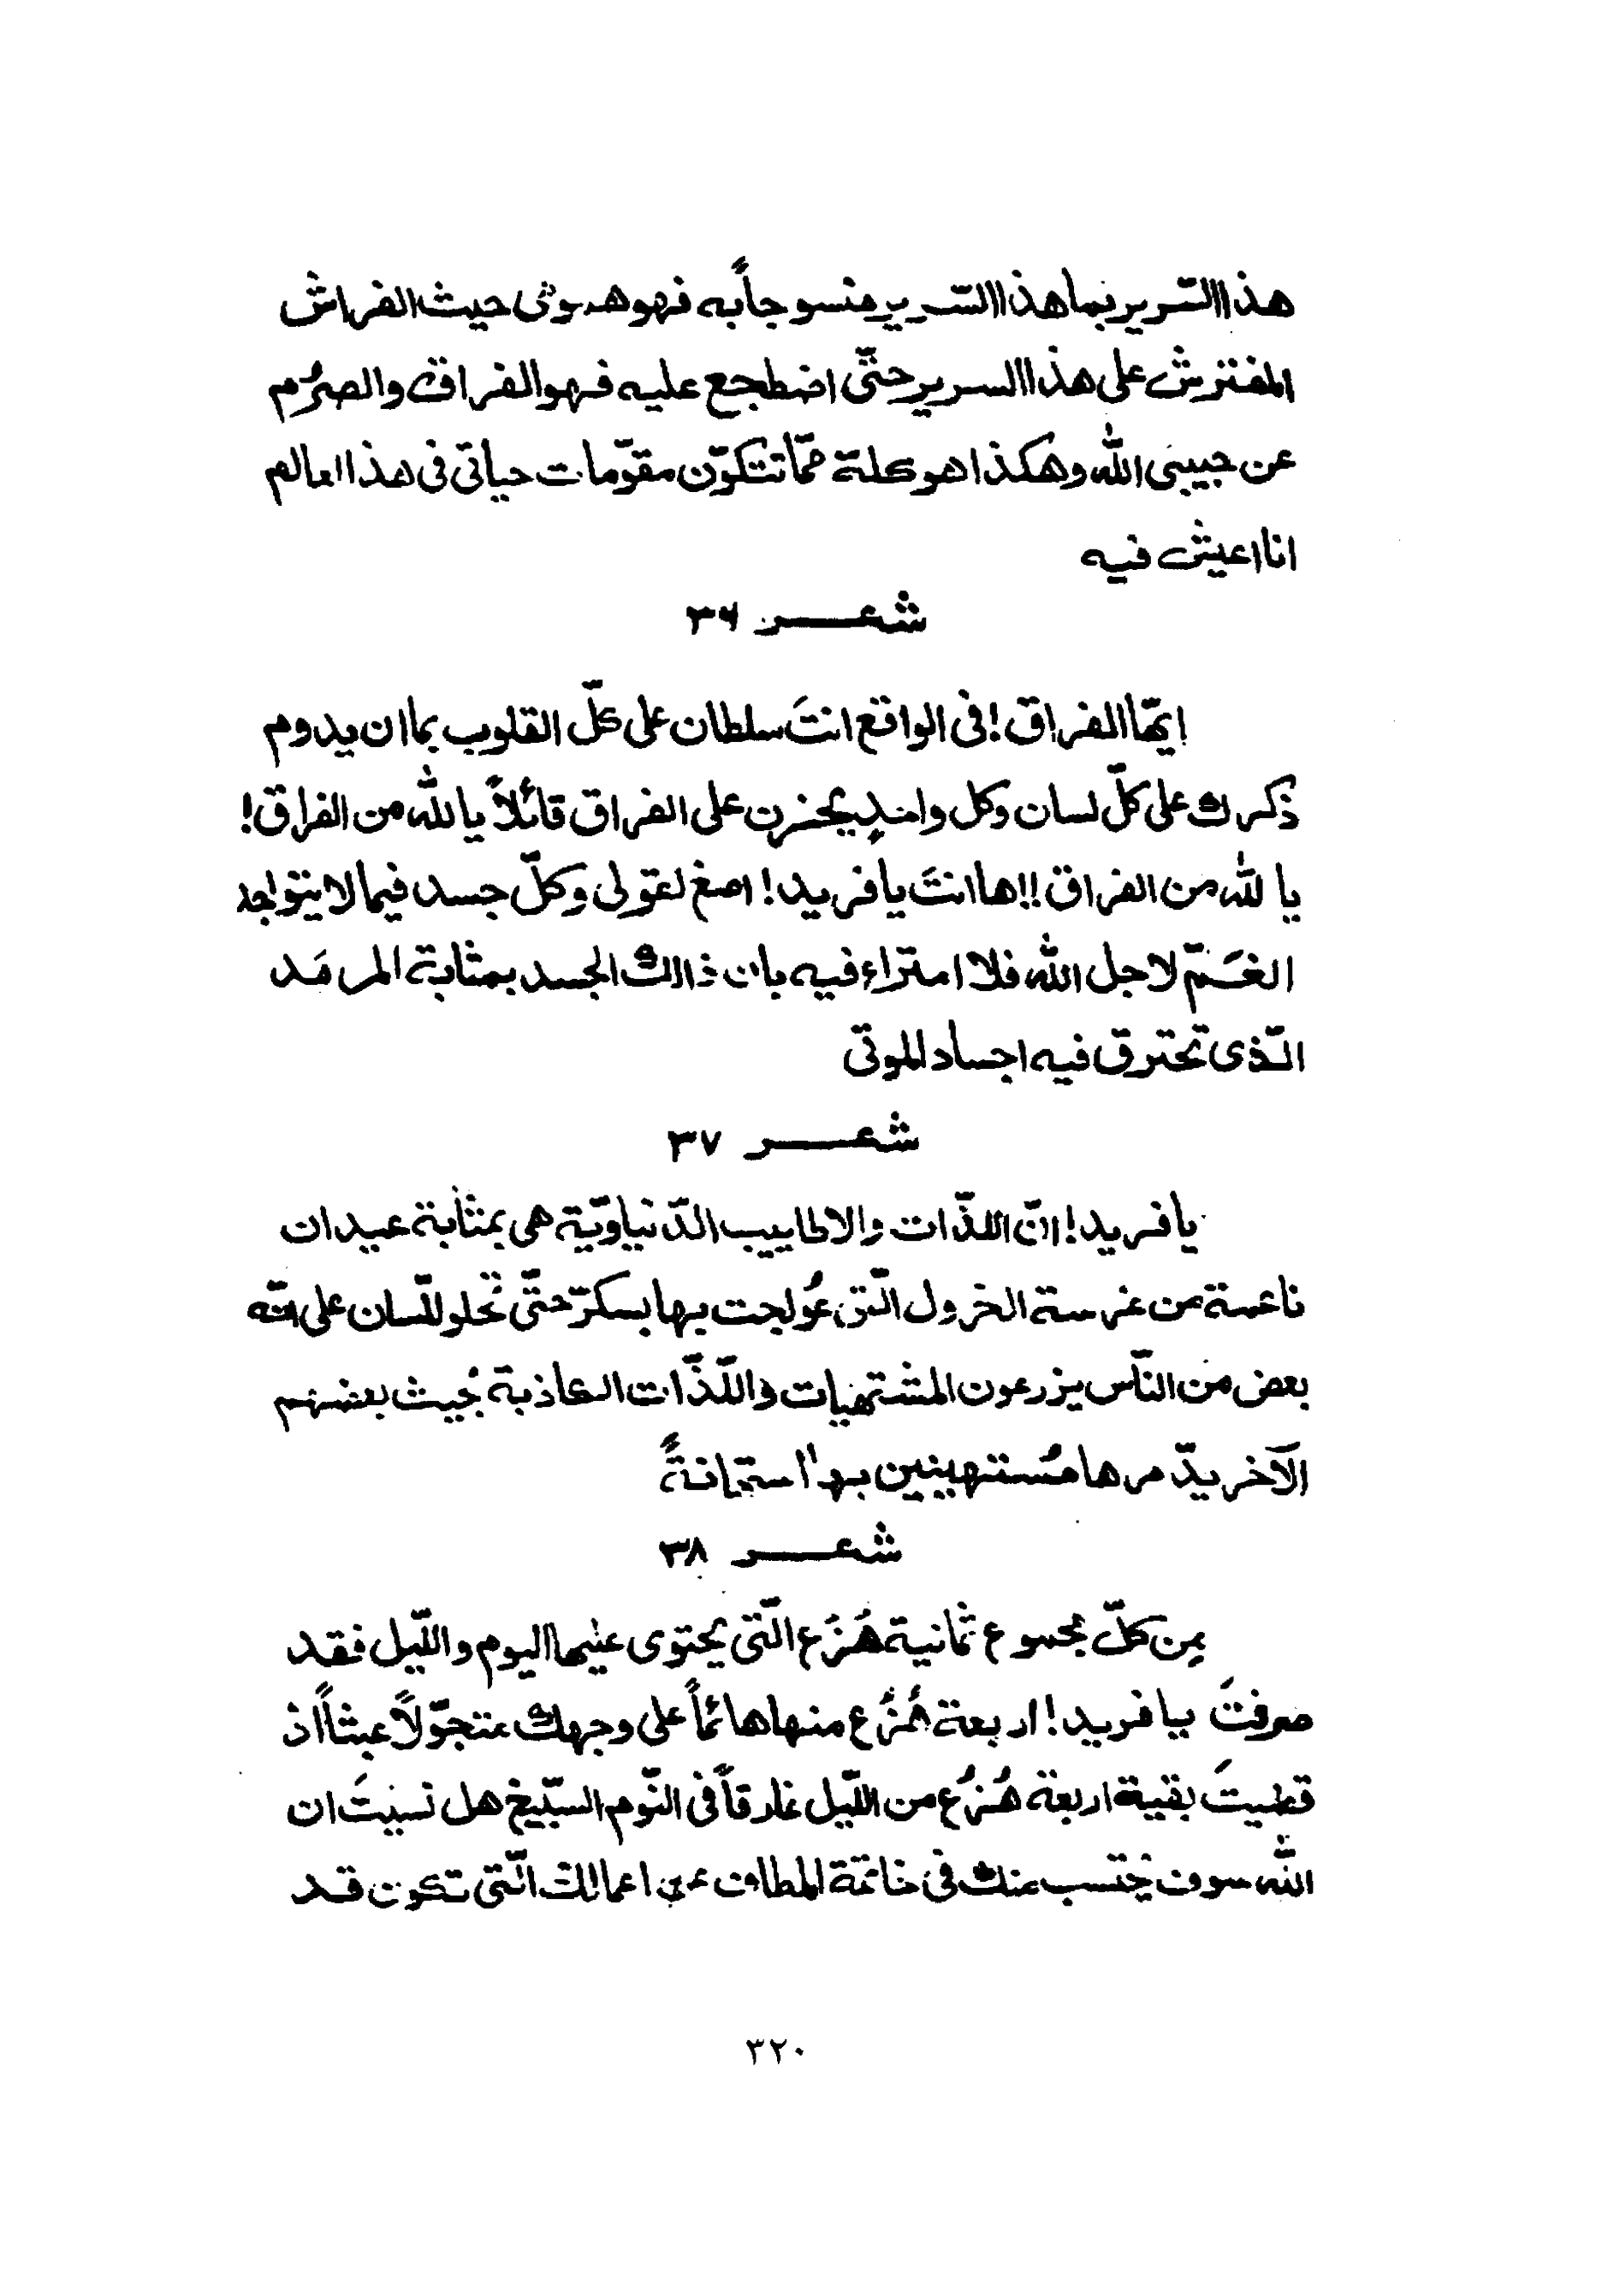 هذا السّرير بما هذا السّرير منسوجاً به فهو هدوئى حيث الفراش
المفترش على هذا السرير حتّى اضطجع عليه فهو الفراق والصرُم
عن حبيبى الله وهكذا هو كلة ممّا تتكوّن مقوّمات حياتى فى هذا العالم
انا اعيش فيه
شعر ٣٦
ايّها الفراق! فى الواقع انتَ سلطان على كلّ القلوب بما ان يدوم
ذكرك على كلّ لسان وكل واحدٍ يحزن على الفراق قائلاً يا لله من الفراق!
يا لله من الفراق!! ها انتَ يا فريد! اصغ لقولى وكلّ جسد فيما لا يتواجد
الغَمّ لاجل الله فلا امتراء فيه بان ذالك الجسد بمثابة المرمَد
الّذى تحترق فيه اجساد الموتى
شعر ٣٧
يا فريد! انّ اللذّات والاطاييب الدّنياويّة هى بمثابة عيدان
ناعمة من غرسة الخرول الّتى عُولجت بها بسكرّ حتّى تحلو للّسان على انّه
بعض من النّاس يزرعون المشتهيات واللّذّات الكاذبة بحيث بعضهم
الآخر يدّمرها مُستهينين بها استهانةً
شعر ٣٨
مِن كلّ مجموع ثمانية هُزُع الّتى يحتوى عليها اليوم واللّيل فقد
صرفتَ يا فريد! اربعة هُزُع منها هائماً على وجهك متجوّلاً عبثاً اذ
قضيتَ بقية اربعة هُزُع من اللّيل غارقاً فى النّوم السّبيخ هل نسيتَ ان
الله سوف يحتسب منك فى خاتمة المطاف عن اعمالك الّتى تكون قد
٣٢٠